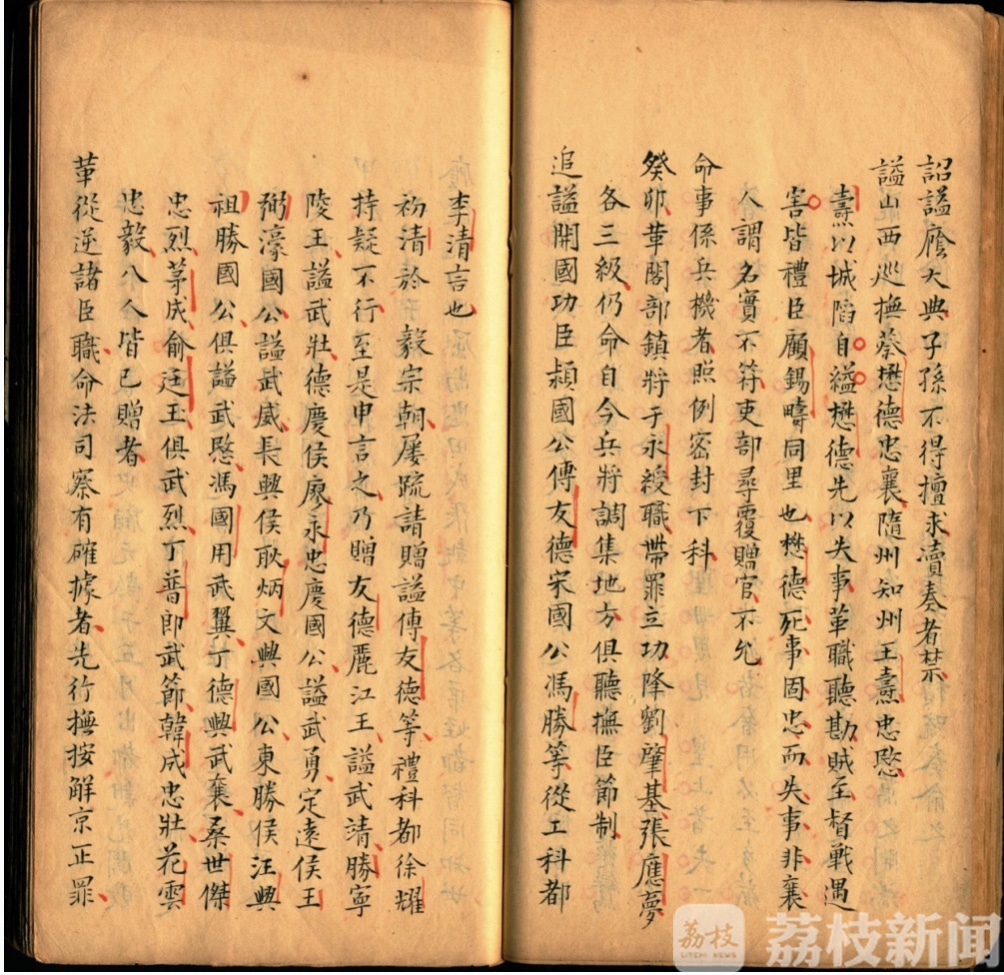 詔謚廕大典子孫不得擅求瀆奏者禁
謚山西巡撫蔡懋德忠襄隨州知州王燾忠愍
燾以城陷自縊懋德先以失事革職聽勘賊至督戰遇
害皆禮臣顧錫疇同里也懋德死事固忠而失事非襄
人謂名實不符吏部尋覆贈官不允
命事係兵機者照例密封下科
癸卯革閣部鎮將于永綬職帶罪立功降劉肇基張應夢
各三級仍命自今兵將調集地方俱聽撫臣節制
追謚開國功臣潁國公傅友德宋國公馮勝等從工科都
李清言也
初清於 毅宗朝屡疏請贈謚傅友德等禮科都徐耀
持疑不行至是申言之乃贈友德麗江王謚武靖勝寧
陵王謚武壯德慶侯廖永忠慶國公謚武勇定遠侯王
弼濠國公謚武威長興侯耿炳文興國公東勝侯汪興
祖勝國公俱謚武愍馮國用武翼丁德興武襄桑世傑
忠烈茅成俞廷玉俱武烈丁普郎武節韓成忠壯花雲
忠毅八人皆已贈者
革從逆諸臣職命法司察有確據者先行撫按解京正罪
荔枝
LITCHI NEWS
荔枝新闻